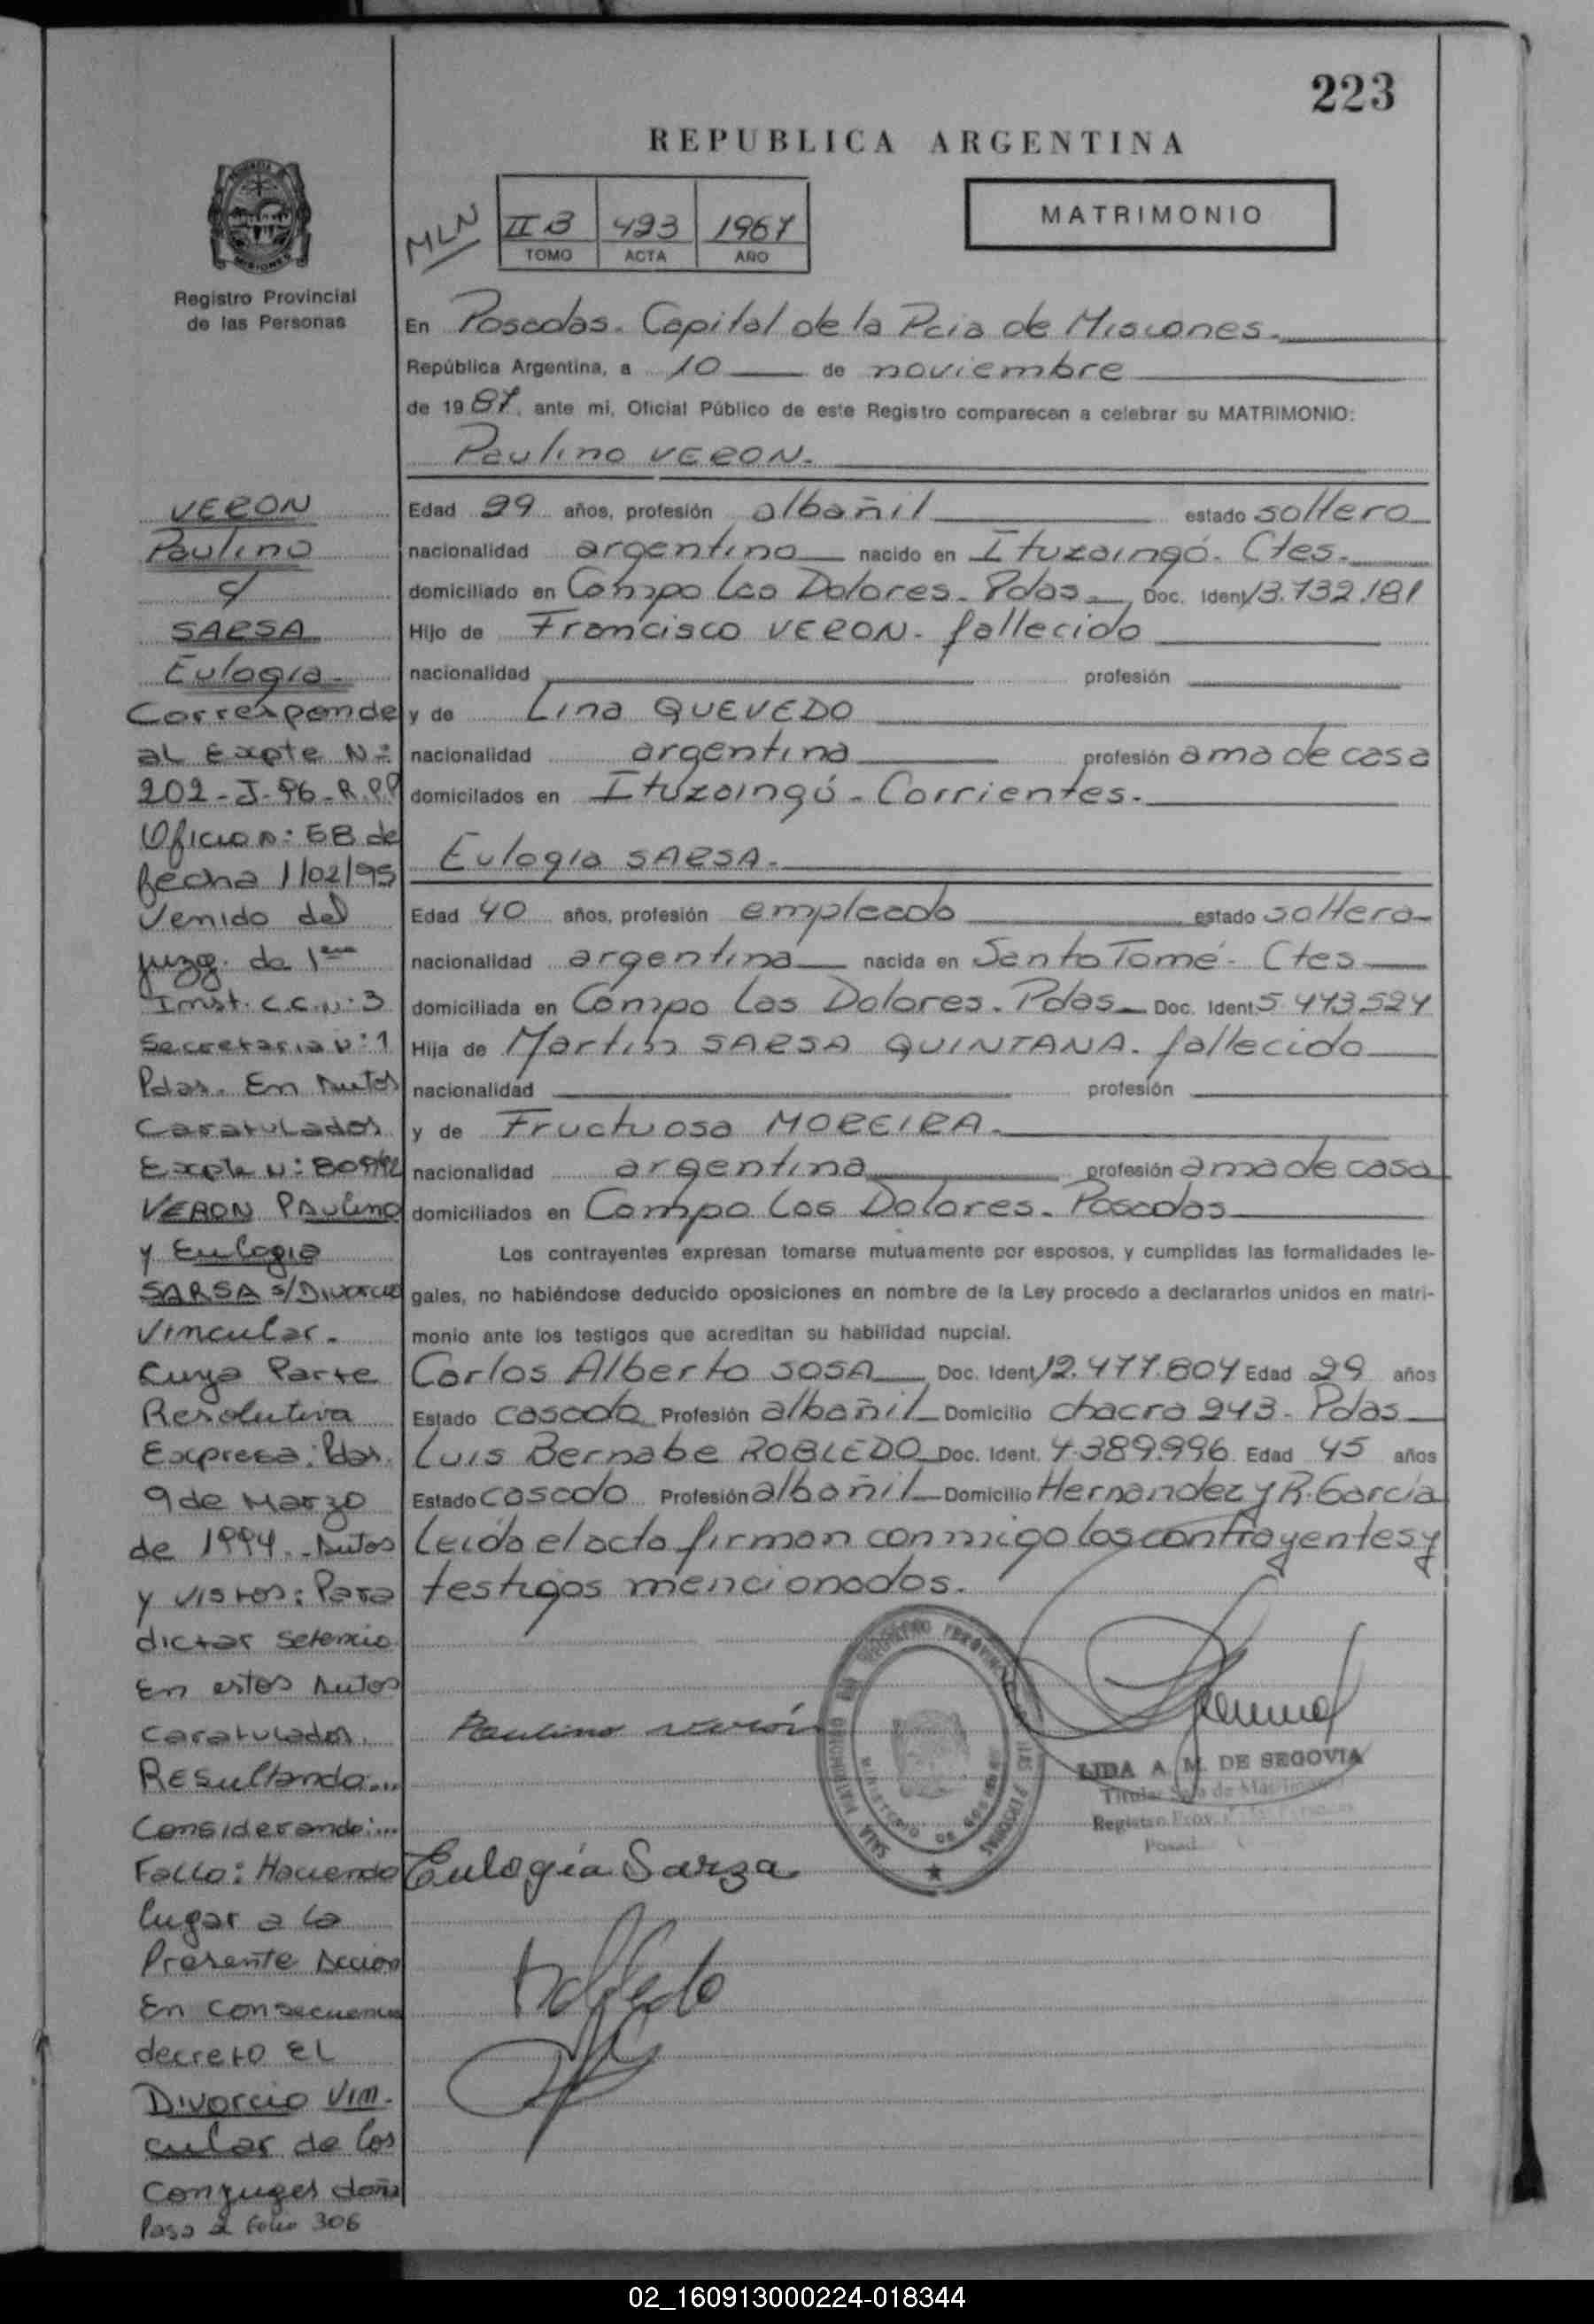 223
REPUBLICA ARGENTINA
MLN
II B 493 1987
TOMO ACTA AÑO
MATRIMONIO
Registro Provincial
de las Personas
En Posadas. Capital de la Pcia de Misiones.
República Argentina, a 10 de noviembre
de 1987, ante mi, Oficial Público de este Registro comparecen a celebrar su MATRIMONIO:
Paulino VERON.
Edad 29 años, profesión albañil estado soltero
nacionalidad argentino nacido en Ituzaingó. Ctes.
domiciliado en Campo Las Dolores. Pdas. Doc. Ident 13.732.181
Hijo de Francisco VERON. fallecido
nacionalidad profesión
y de Lina QUEVEDO
nacionalidad argentina profesión ama de casa
domicilados en Ituzaingó - Corrientes.
Eulogia SARSA.
Edad 40 años, profesión empleada estado soltera
nacionalidad argentina nacida en Santo Tomé - Ctes
domiciliada en Campo Las Dolores. Pdas Doc. Ident. 5.473.524
Hija de Martin SARSA QUINTANA. fallecido
nacionalidad profesión
y de Fructuosa MOREIRA.
nacionalidad argentina profesión ama de casa
domiciliados en Campo Las Dolores. Posadas
Los contrayentes expresan tomarse mutuamente por esposos, y cumplidas las formalidades le-
gales, no habiéndose deducido oposiciones en nombre de la Ley procedo a declararlos unidos en matri-
monio ante los testigos que acreditan su habilidad nupcial.
Carlos Alberto SOSA Doc. Ident 12.477.804 Edad 29 años
Estado casado Profesión albañil Domicilio chacra 243 - Pdas
Luis Bernabe ROBLEDO Doc. Ident. 7.389.996 Edad 45 años
Estado casado Profesión albañil Domicilio Hernandez y R. Garcia
Leída el acta firman conmigo los contrayentes y
testigos mencionados.
Paulino verón
LIDA A. M. DE SEGOVIA
Titular Sala de Matrimonios
Registro Prov. de las Personas
Posad
Eulogia Sarza
Robledo
VERON
Paulino
c/
SARSA
Eulogia
Corresponde
al Expte Nº
202-J-96-R.P.P
Oficio n: 58 de
fecha 1/02/95
Venido del
juzg. de 1era
Inst. C.C.N: 3
Secretaria n: 1
Pdas. En Autos
Caratulados
Expte N:
VERON PAulino
y Eulogia
SARSA s/Divorcio
Vincular.
Cuya Parte
Resolutiva
Expresa: Pdas.
9 de Marzo
de 1994. Autos
y vistos: Para
dictar setencia
En estos Autos
caratulados.
Resultando...
Considerando:...
Fallo: Haciendo
lugar a la
Presente Accion
En consecuencia
decreto EL
Divorcio Vin-
cular de los
Conyuges doña
Pasa a folio 306
02_160913000224-018344